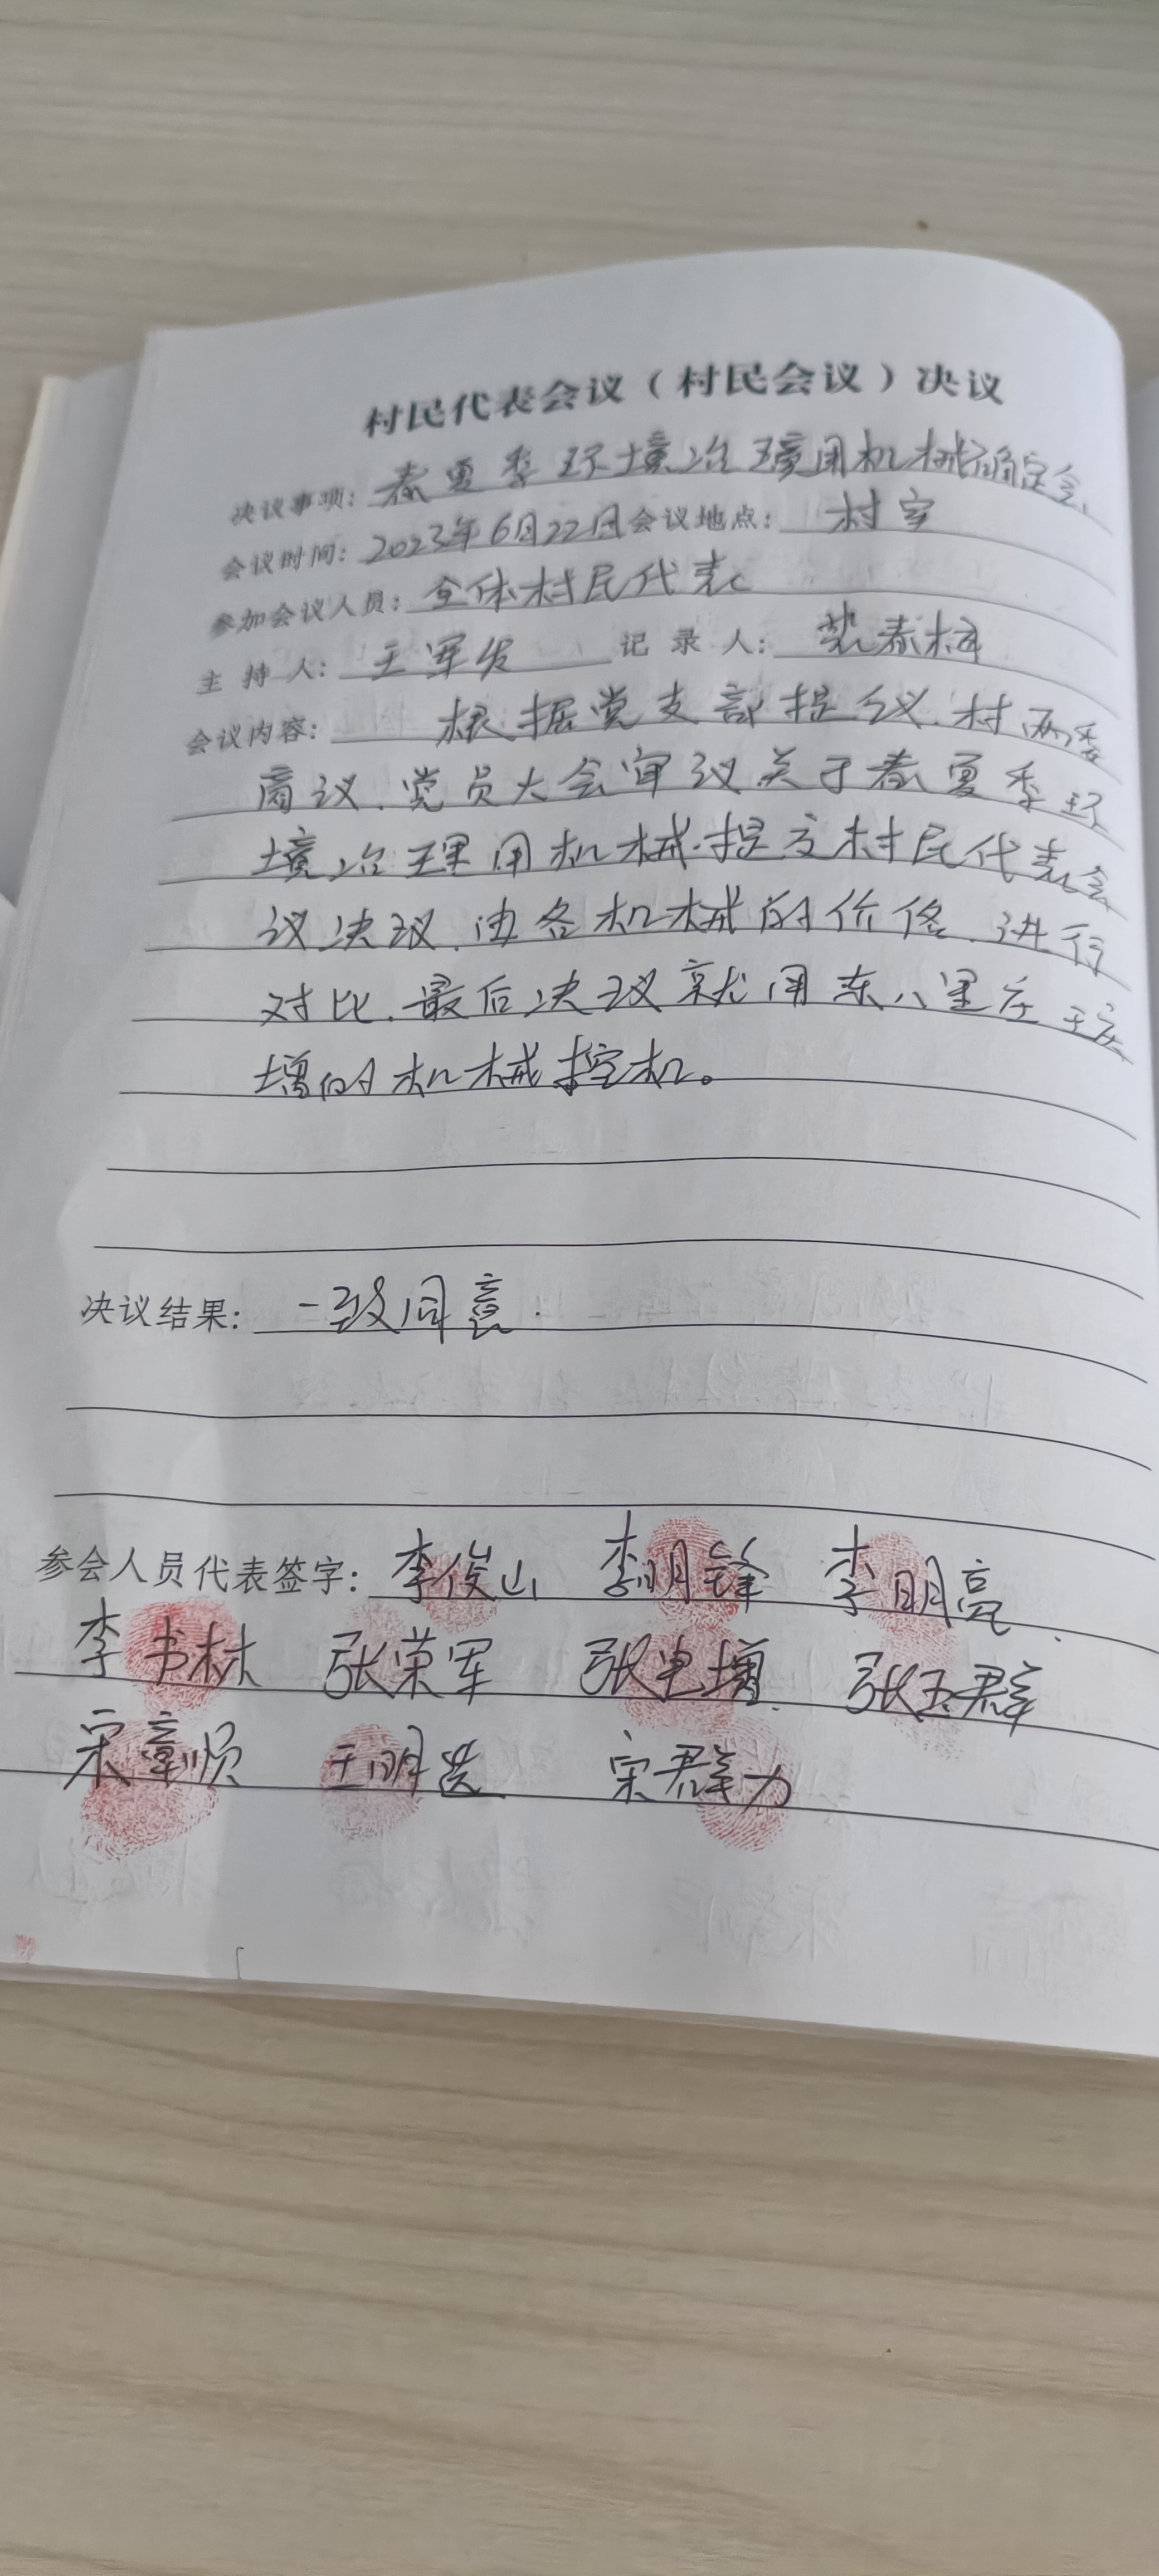 村民代表会议（村民会议）决议
决议事项：春夏季环境治理用机械确定会.
会议时间：2023年6月22日会议地点：村室
参加会议人员：全体村民代表
主持人：王军发 记录人：春梅
会议内容：根据党支部提议.村两委
商议.党员大会审议关于春夏季环
境治理用机械.提交村民代表会
议决议.由各机械的价格.进行
对比.最后决议就用东八里庄王庆
增的机械挖机。
决议结果：一致同意.
参会人员代表签字：李俊山 李明锋 李明亮.
李书林 张荣军 张增. 张玉群
宋章顺 王明选 宋群力